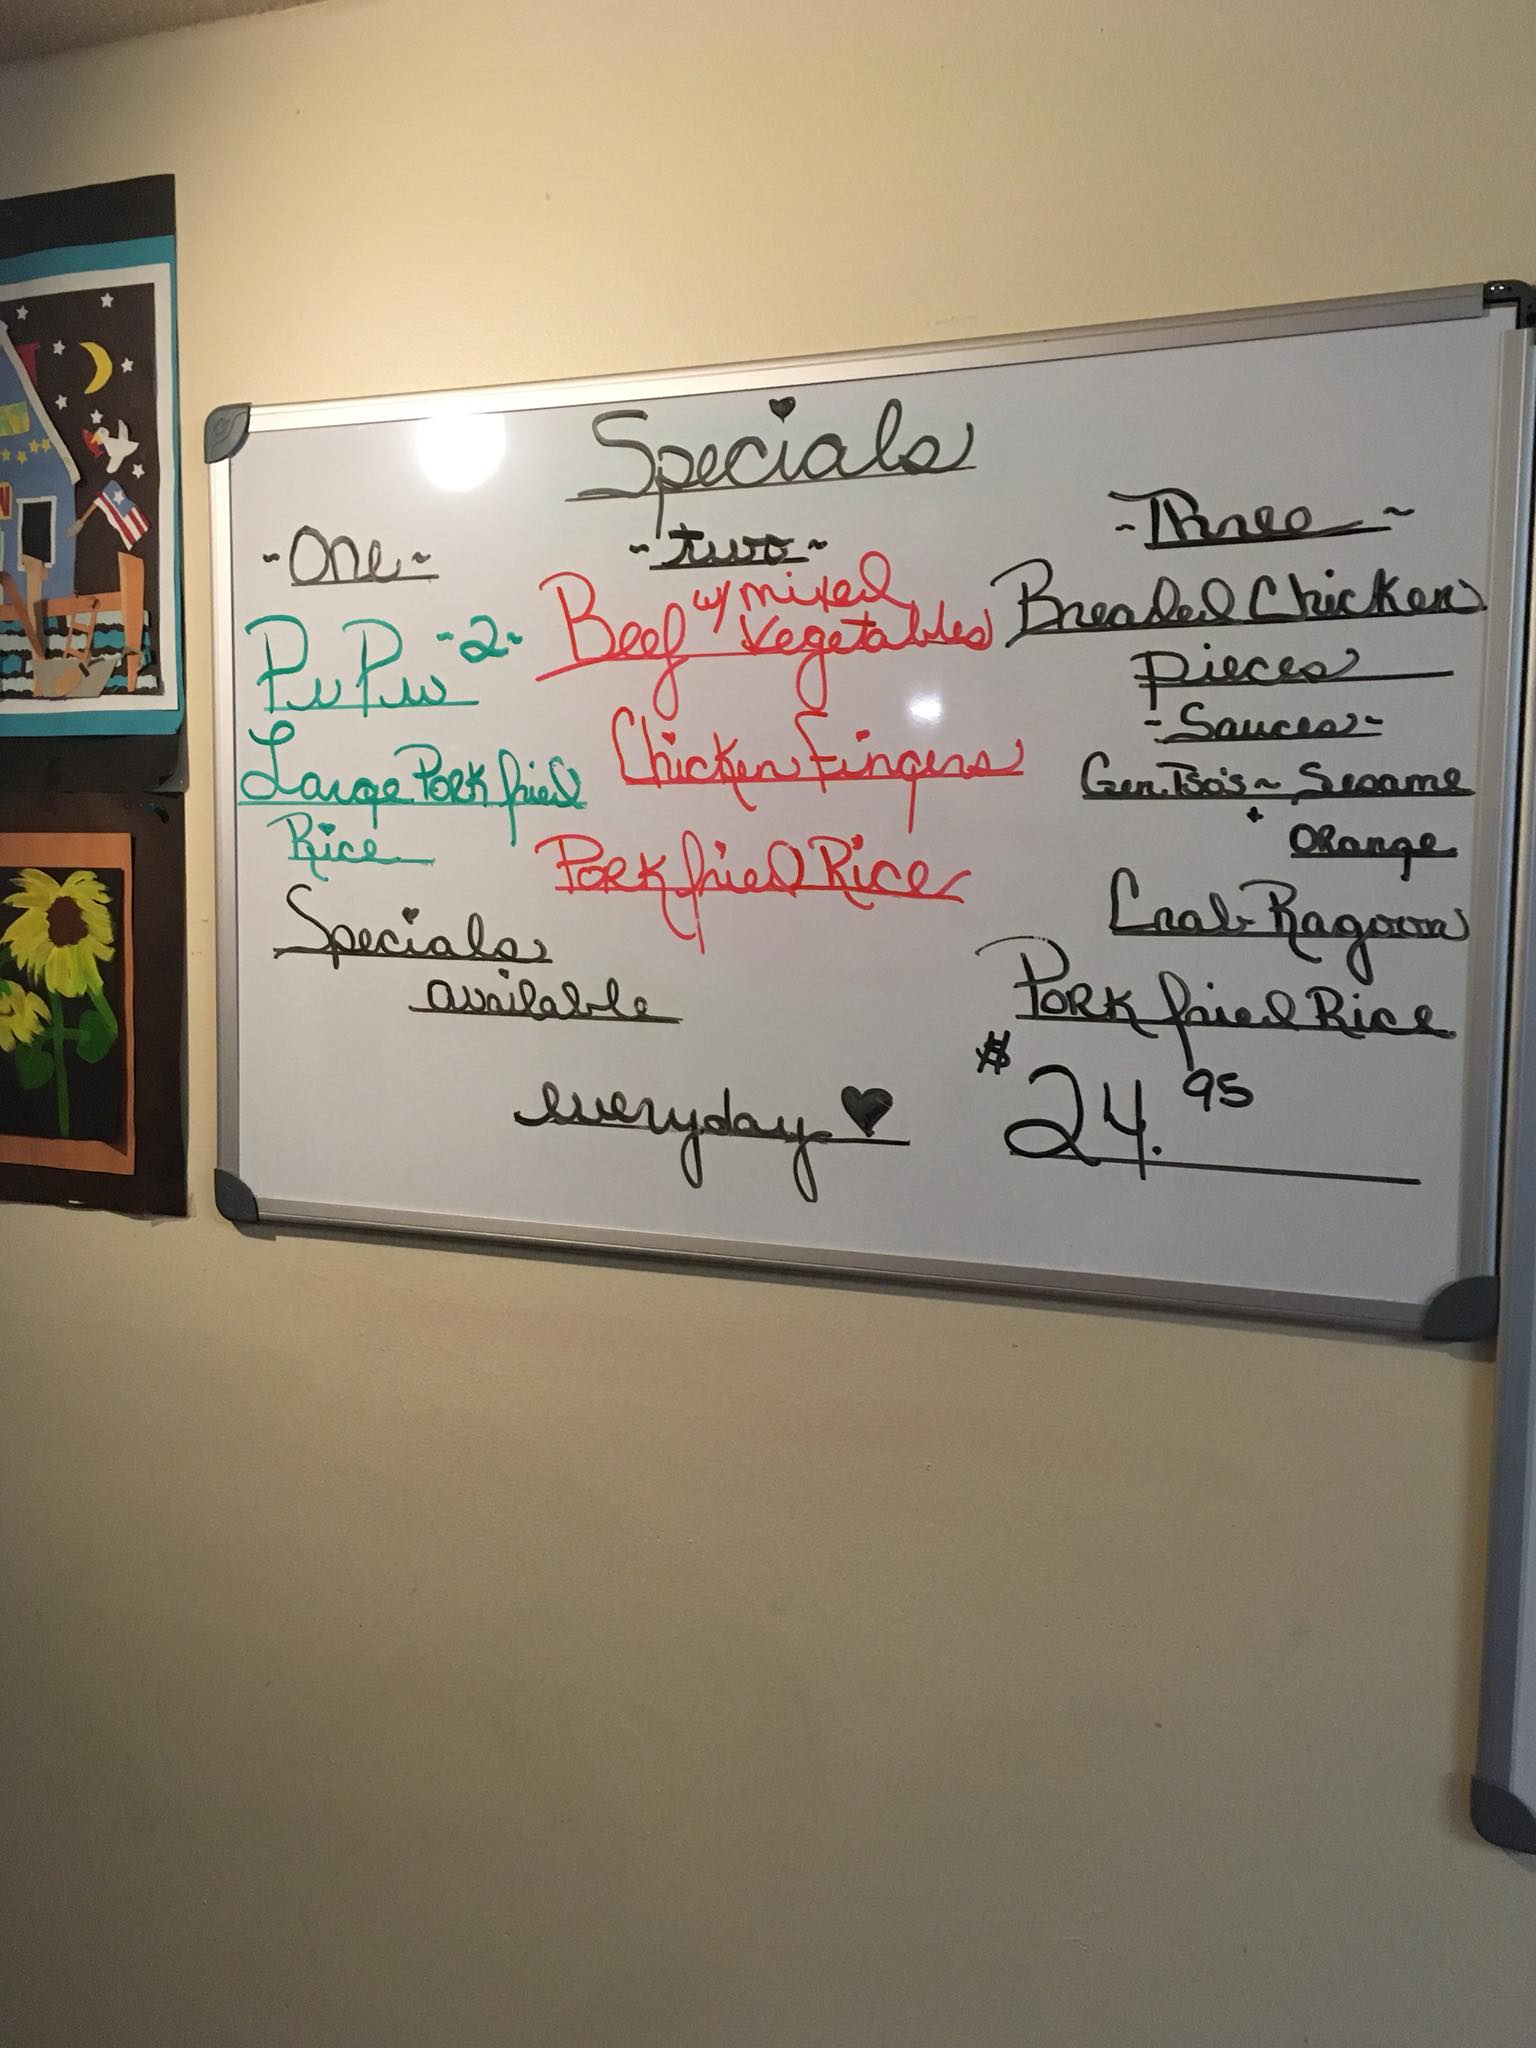 Specials
~One~
Pu Pu ~2~
Large Pork fried
Rice
Specials
available
everyday
~two~
Beef w/ mixed
vegetables
Chicken Fingers
Pork fried Rice
~Three~
Breaded Chicken
pieces
~Sauces~
Gen. Tso's ~ Sesame
+
Orange
Crab Ragoon
Pork fried Rice
$24.95